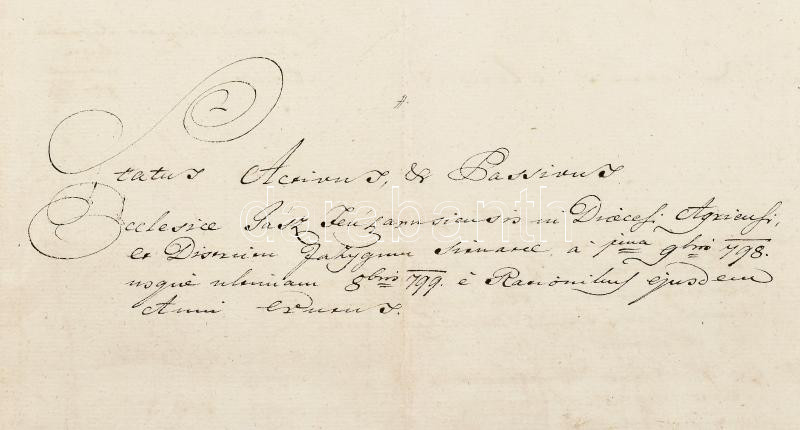 Status Activus, & Passivus
Ecclesiæ Jász Fenszarusiensis in Diœcesi Agriensi,
et Districtu Jazygum sitnatæ, à pima 9bris 798.
usque ultimam 8bris 799. è Rationibus ejusdem
Anni erutus.
darabanth